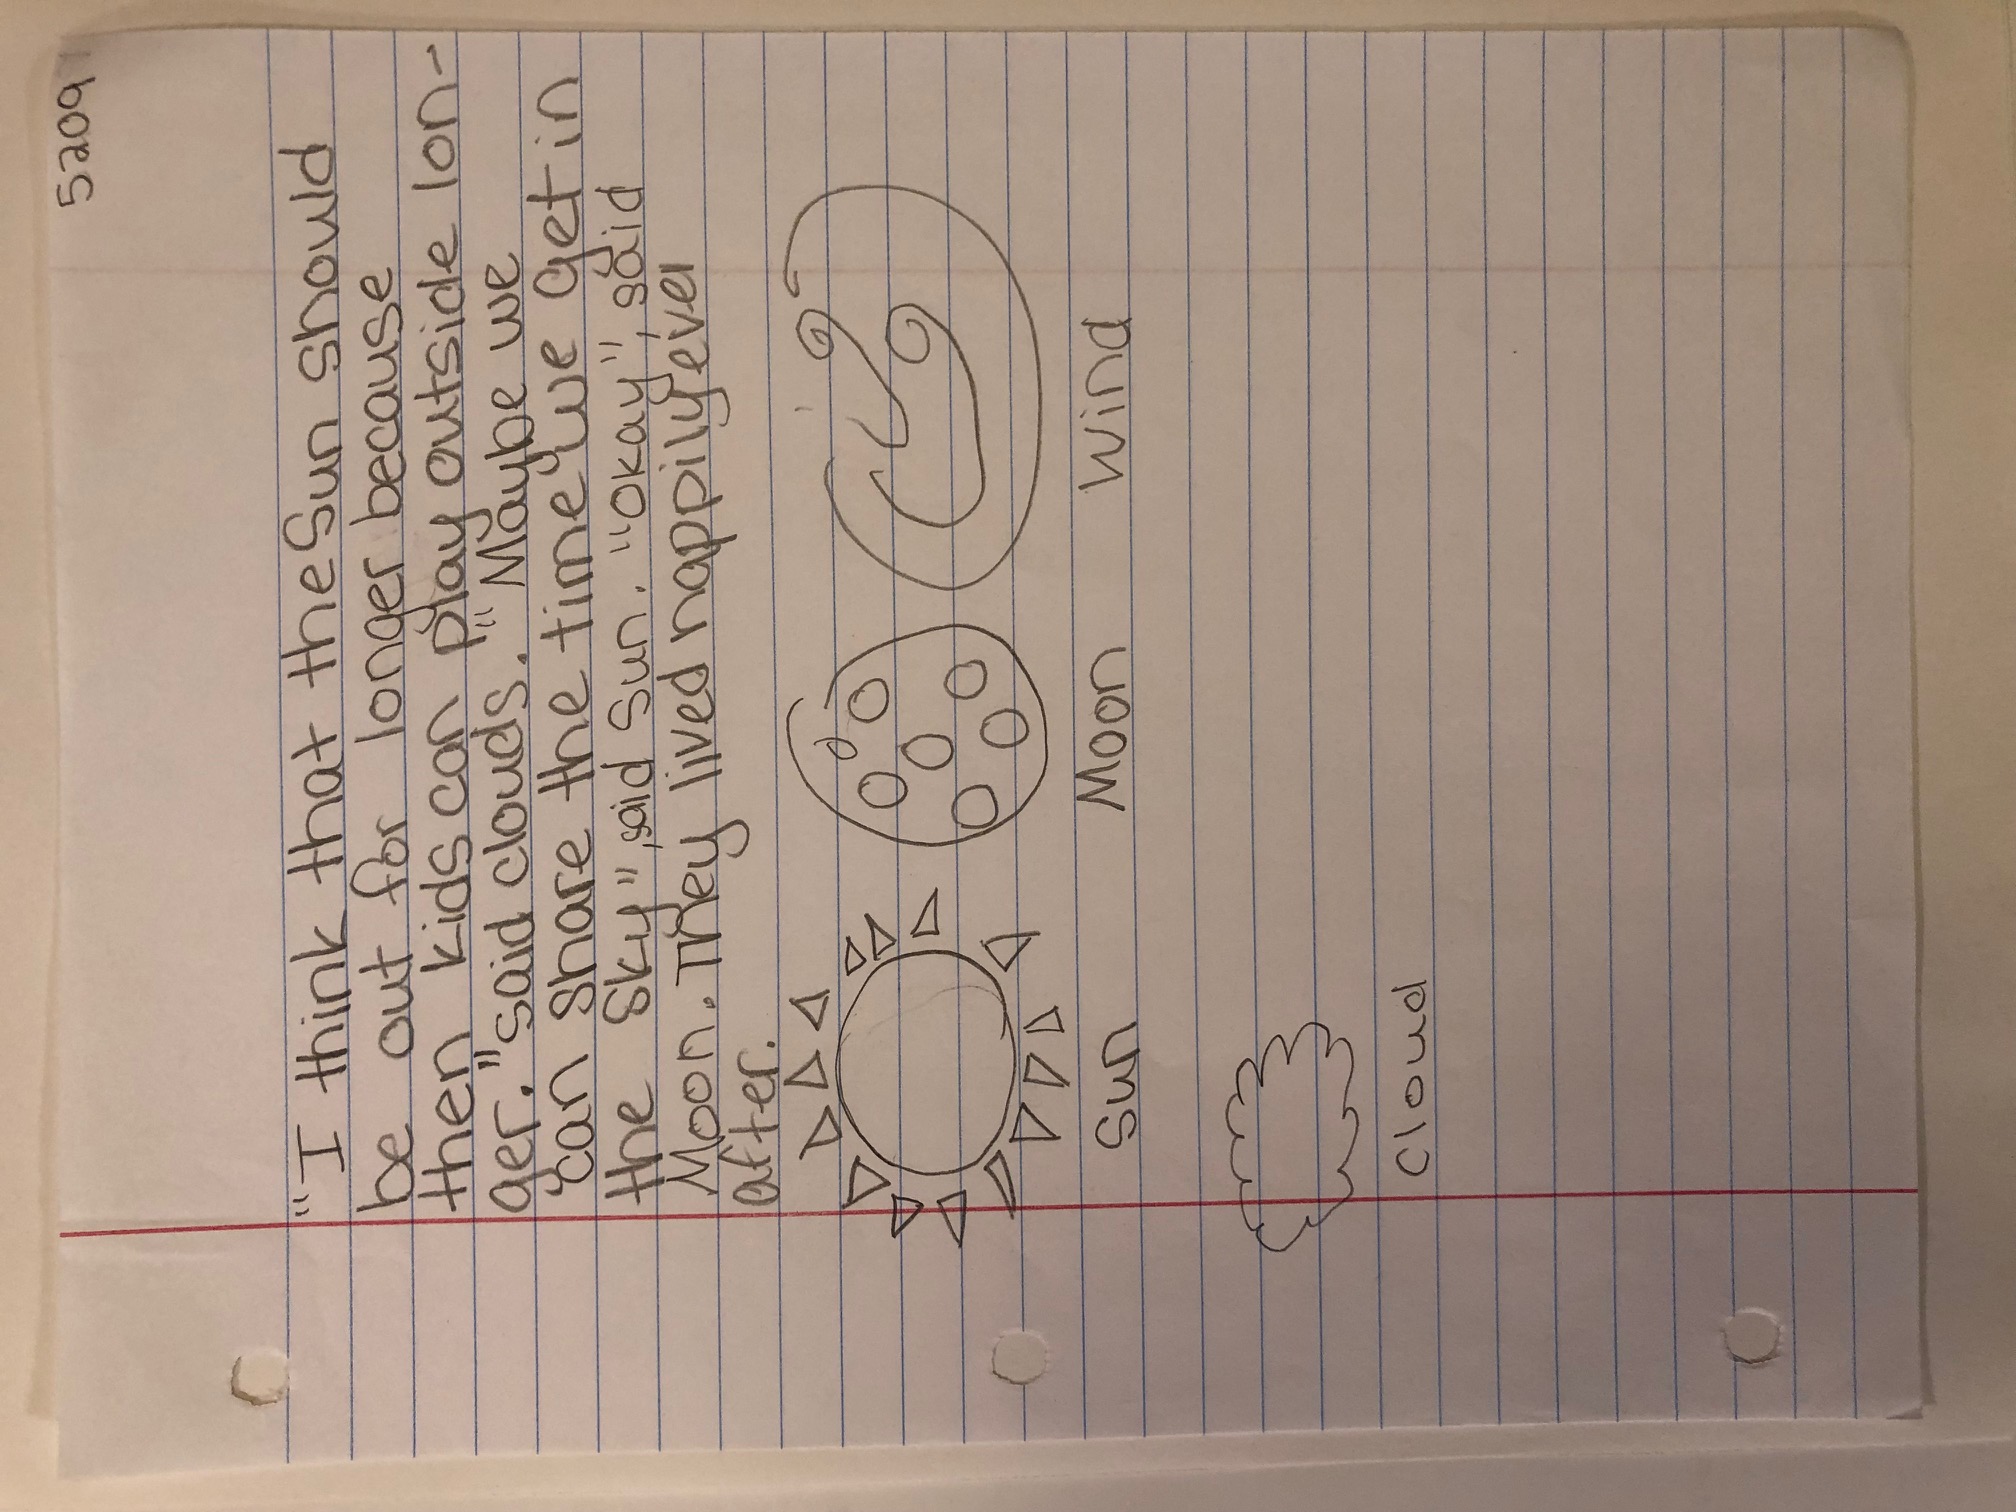 5209
"I think that the Sun should
be out for longer because
then kids can play outside lon-
ger." said clouds. "Maybe we
can share the time we get in
the Sky", said Sun. "Okay", said
Moon. They lived happily ever
after.
Sun Moon Wind
Cloud